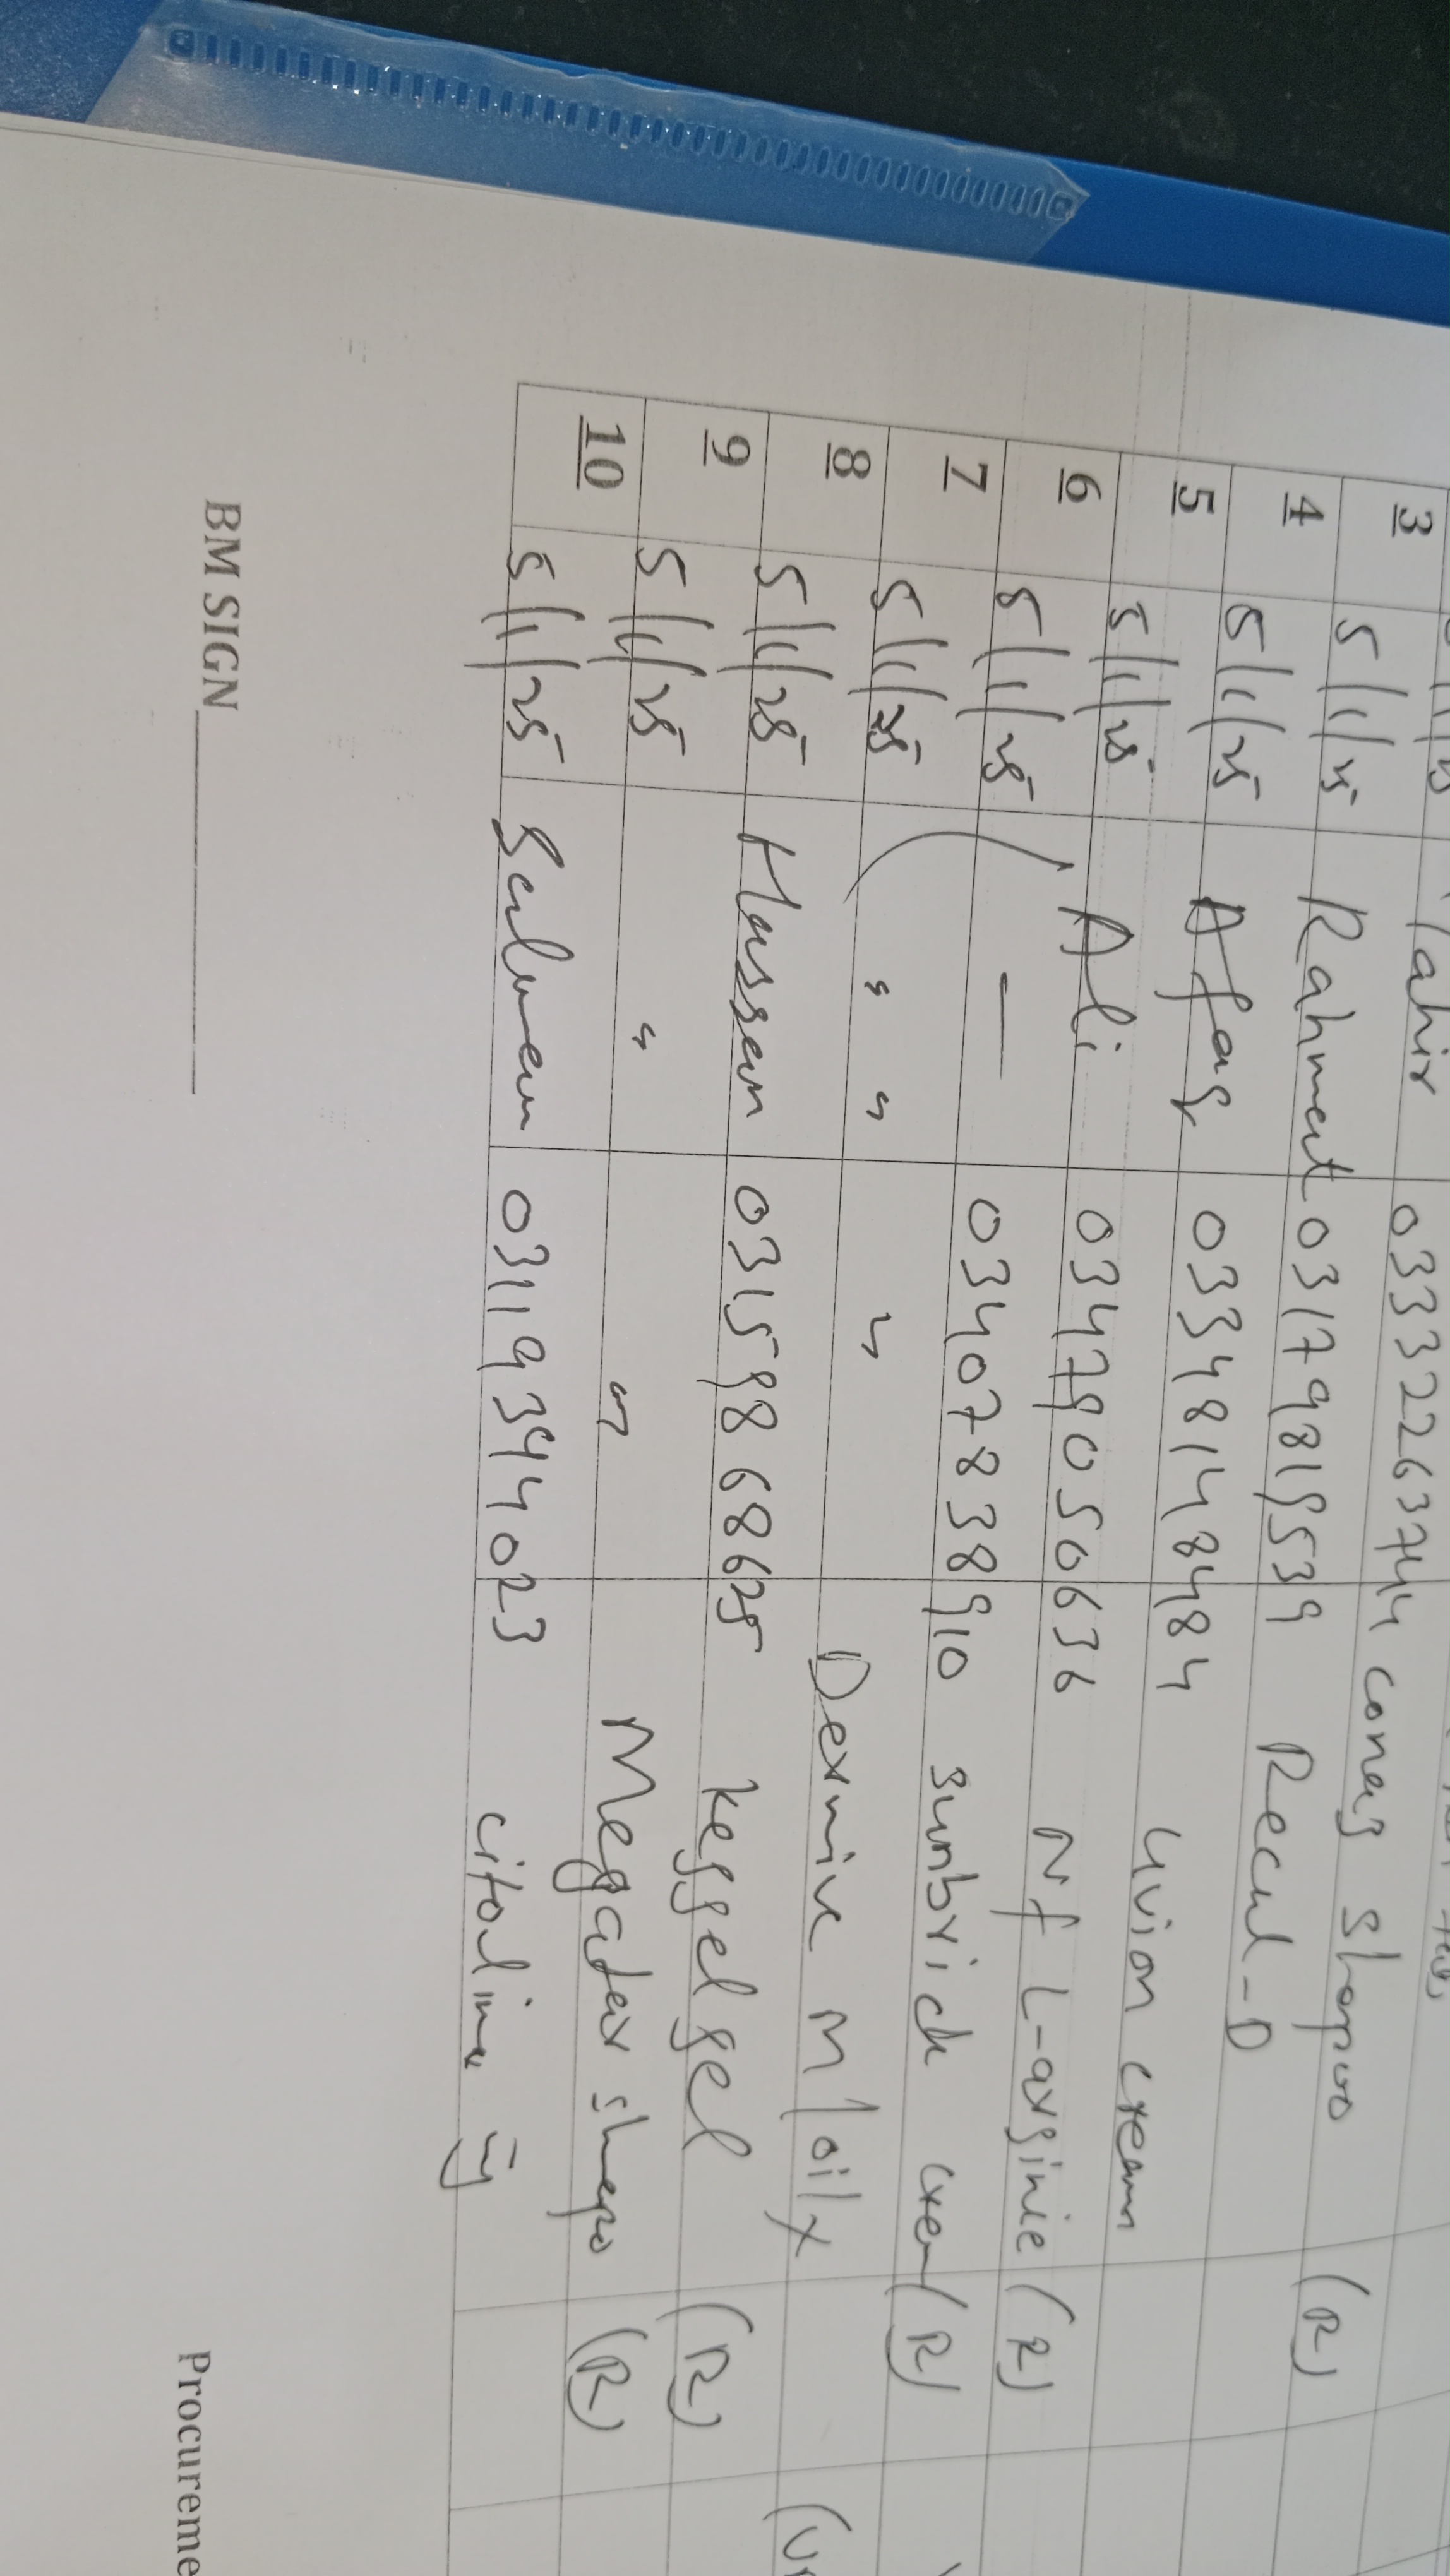 3 5/11/25 Tahir 03332263744 conaz shapoo (R)
4 5/11/25 Rahmat 03179819539 Recul-D
5 5/11/25 Afaq 03348148484 Uvion cream
6 5/11/25 Ali 03479050636 Nf L-arginie (R)
7 5/11/25 — 03407838910 sunbrich crem (R)
8 5/11/25 " " " Dermive M/oilx
9 5/11/25 Hassan 03159868625 keggel gel (R)
10 5/11/25 " " Megader shapo (R)
5/11/25 Salman 03119394023 citoline Ij
BM SIGN Procureme